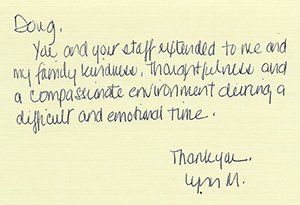 Doug,
You and your staff extended to me and
my family kindness, thoughtfulness and
a compassionate environment during a
difficult and emotional time.
Thank you.
Lynn M.